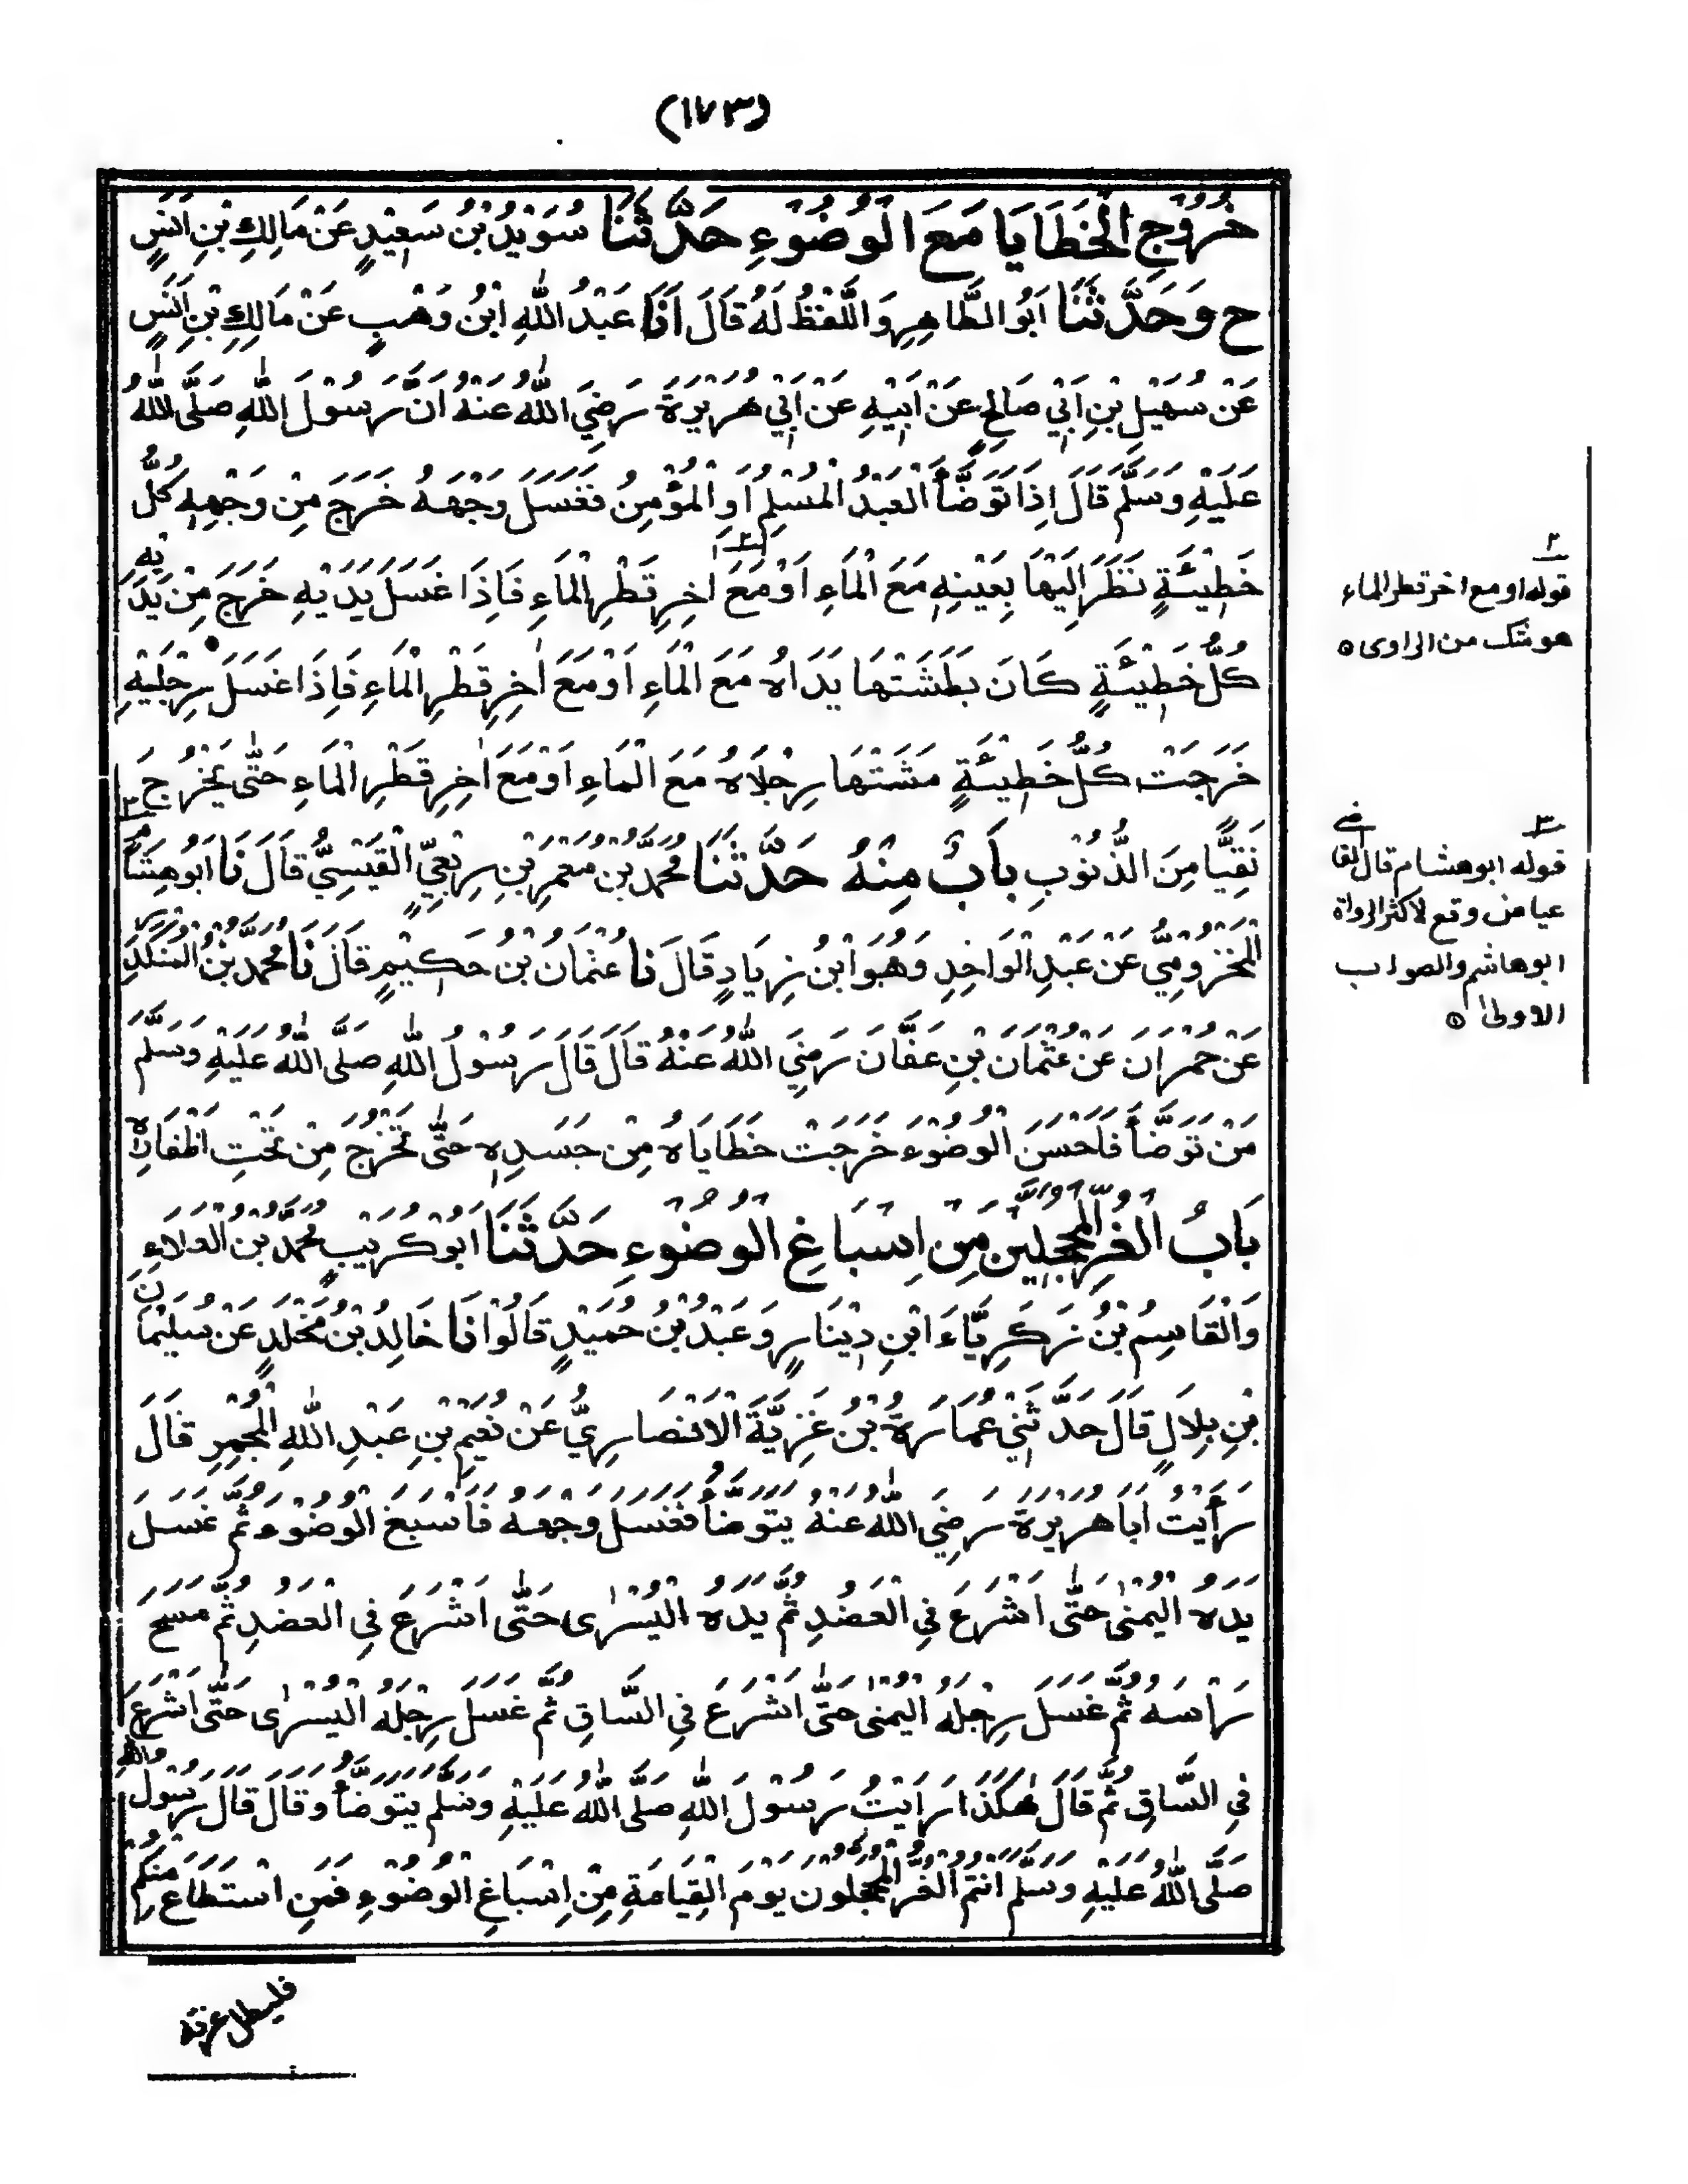 (١٧٣)
خُرُوْجِ الْخَطَايَا مَعَ الْوُضُوْءِ حَدَّثَنَا سُوَيْدُ بْنُ سَعِيْدٍ عَنْ مَالِكِ بْنِ اَنَسٍ
ح وَحَدَّثَنَا اَبُو الطَّاهِرِ وَاللَّفْظُ لَهُ قَالَ اَنَا عَبْدُ اللّٰهِ ابْنُ وَهْبٍ عَنْ مَالِكِ بْنِ اَنَسٍ
عَنْ سُهَيْلِ بْنِ اَبِيْ صَالِحٍ عَنْ اَبِيْهِ عَنْ اَبِيْ هُرَيْرَةَ رَضِيَ اللّٰهُ عَنْهُ اَنَّ رَسُوْلَ اللّٰهِ صَلَّى اللّٰهُ
عَلَيْهِ وَسَلَّمَ قَالَ اِذَا تَوَضَّأَ الْعَبْدُ الْمُسْلِمُ اَوِ الْمُؤْمِنُ فَغَسَلَ وَجْهَهُ خَرَجَ مِنْ وَجْهِهٖ كُلُّ
خَطِيْئَةٍ نَظَرَ اِلَيْهَا بِعَيْنِهٖ مَعَ الْمَاءِ اَوْ مَعَ ٢ اٰخِرِ قَطْرِ الْمَاءِ فَاِذَا غَسَلَ يَدَيْهِ خَرَجَ مِنْ يَدَيْهِ
كُلُّ خَطِيْئَةٍ كَانَ بَطَشَتْهَا يَدَاهُ مَعَ الْمَاءِ اَوْ مَعَ اٰخِرِ قَطْرِ الْمَاءِ فَاِذَا غَسَلَ رِجْلَيْهِ
خَرَجَتْ كُلُّ خَطِيْئَةٍ مَشَتْهَا رِجْلَاهُ مَعَ الْمَاءِ اَوْ مَعَ اٰخِرِ قَطْرِ الْمَاءِ حَتّٰى يَخْرُجَ
نَقِيًّا مِنَ الذُّنُوْبِ بَابٌ مِنْهُ حَدَّثَنَا مُحَمَّدُ بْنُ مَعْمَرِ بْنِ رِبْعِيٍّ الْقَيْسِيُّ قَالَ نَا اَبُوْ هِشَامٍ ٣
الْمَخْزُوْمِيُّ عَنْ عَبْدِ الْوَاحِدِ وَهُوَ ابْنُ زِيَادٍ قَالَ نَا عُثْمَانُ بْنُ حَكِيْمٍ قَالَ نَا مُحَمَّدُ بْنُ الْمُنْكَدِرِ
عَنْ حُمْرَانَ عَنْ عُثْمَانَ بْنِ عَفَّانَ رَضِيَ اللّٰهُ عَنْهُ قَالَ قَالَ رَسُوْلُ اللّٰهِ صَلَّى اللّٰهُ عَلَيْهِ وَسَلَّمَ
مَنْ تَوَضَّأَ فَاَحْسَنَ الْوُضُوْءَ خَرَجَتْ خَطَايَاهُ مِنْ جَسَدِهٖ حَتّٰى تَخْرُجَ مِنْ تَحْتِ اَظْفَارِهٖ
بَابُ الْغُرِّ الْمُحَجَّلِيْنَ مِنْ اِسْبَاغِ الْوُضُوْءِ حَدَّثَنَا اَبُوْ كُرَيْبٍ مُحَمَّدُ بْنُ الْعَلَاءِ
وَالْقَاسِمُ بْنُ زَكَرِيَّاءَ ابْنِ دِيْنَارٍ وَعَبْدُ بْنُ حُمَيْدٍ قَالُوْا نَا خَالِدُ بْنُ مَخْلَدٍ عَنْ سُلَيْمَانَ
بْنِ بِلَالٍ قَالَ حَدَّثَنِيْ عُمَارَةُ بْنُ غَزِيَّةَ الْاَنْصَارِيُّ عَنْ نُعَيْمِ بْنِ عَبْدِ اللّٰهِ الْمُجْمِرِ قَالَ
رَأَيْتُ اَبَا هُرَيْرَةَ رَضِيَ اللّٰهُ عَنْهُ يَتَوَضَّأُ فَغَسَلَ وَجْهَهُ فَاَسْبَغَ الْوُضُوْءَ ثُمَّ غَسَلَ
يَدَهُ الْيُمْنٰى حَتّٰى اَشْرَعَ فِي الْعَضُدِ ثُمَّ يَدَهُ الْيُسْرٰى حَتّٰى اَشْرَعَ فِي الْعَضُدِ ثُمَّ مَسَحَ
رَأْسَهُ ثُمَّ غَسَلَ رِجْلَهُ الْيُمْنٰى حَتّٰى اَشْرَعَ فِي السَّاقِ ثُمَّ غَسَلَ رِجْلَهُ الْيُسْرٰى حَتّٰى اَشْرَعَ
فِي السَّاقِ ثُمَّ قَالَ هٰكَذَا رَاَيْتُ رَسُوْلَ اللّٰهِ صَلَّى اللّٰهُ عَلَيْهِ وَسَلَّمَ يَتَوَضَّأُ وَقَالَ قَالَ رَسُوْلُ اللّٰهِ
صَلَّى اللّٰهُ عَلَيْهِ وَسَلَّمَ اَنْتُمُ الْغُرُّ الْمُحَجَّلُوْنَ يَوْمَ الْقِيَامَةِ مِنْ اِسْبَاغِ الْوُضُوْءِ فَمَنِ اسْتَطَاعَ مِنْكُمْ
فليطل غرته
٢
قوله او مع اخر قطر الماء
هو شك من الراوى ٥
٣
قوله ابو هشام قال القاضي
عياض وقع لاكثر الرواة
ابو هاشم والصواب
الاولى ٥